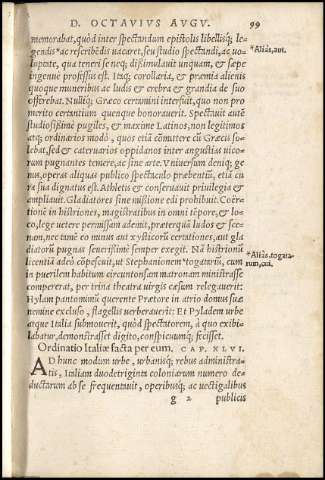 D. OCTAVIVS AVGV. 99
memorabat, quòd inter spectandum epistolis libellisq; le-
gendis *ac rescribēdis uacaret, seu studio spectandi, ac uo-
*Aliàs, aut.
luptate, qua teneri se neq; dissimulauit unquam, & sæpe
ingenuè professus est. Itaq; corollaria, & præmia alienis
quoque muneribus ac ludis & crebra & grandia de suo
offerebat. Nulliq; Græco certamini interfuit, quo non pro
merito certantium quenque honorauerit. Spectauit autē
studiosissimè pugiles, & maximè Latinos, non legitimos
atq; ordinarios modò, quos etiā cōmittere cū Græcis so-
lebat, sed & cateruarios oppidanos inter angustias uico-
rum pugnantes temerè, ac sine arte. Vniuersum deniq; ge
nus, operas aliquas publico spectaculo præbentiū, etiā cu
ra sua dignatus est. Athletis & conseruauit priuilegia &
ampliauit. Gladiatores sine missione edi prohibuit. Coër-
tionē in histriones, magistratibus in omni tēpore, & lo-
co, lege uetere permissam ademit, præterquā ludos & sce-
nam, nec tamē eo minus aut xysticorū certationes, aut gla
diatorū pugnas seuerissimè semper exegit. Nā histrionū
licentiā adeò cōpescuit, ut Stephanionem *togatariū, cum
*Aliàs, togata-
rum, cui.
in puerilem habitum circuntonsam matronam ministrasse
compererat, per trina theatra uirgis cæsum relegauerit:
Hylam pantomimū querente Prætore in atrio domus suæ
nemine excluso, flagellis uerberauerit: Et Pyladem urbe
atque Italia submouerit, quòd spectatorem, à quo exibi-
labatur, demonstrasset digito, conspicuumq; fecisset.
Ordinatio Italiæ facta per eum. CAP. XLVI.
AD hunc modum urbe, urbanisq; rebus administra-
tis, Italiam duodetriginta coloniarum numero de-
ductarum ab se frequentauit, operibusq; ac uectigalibus
g 2 publicis